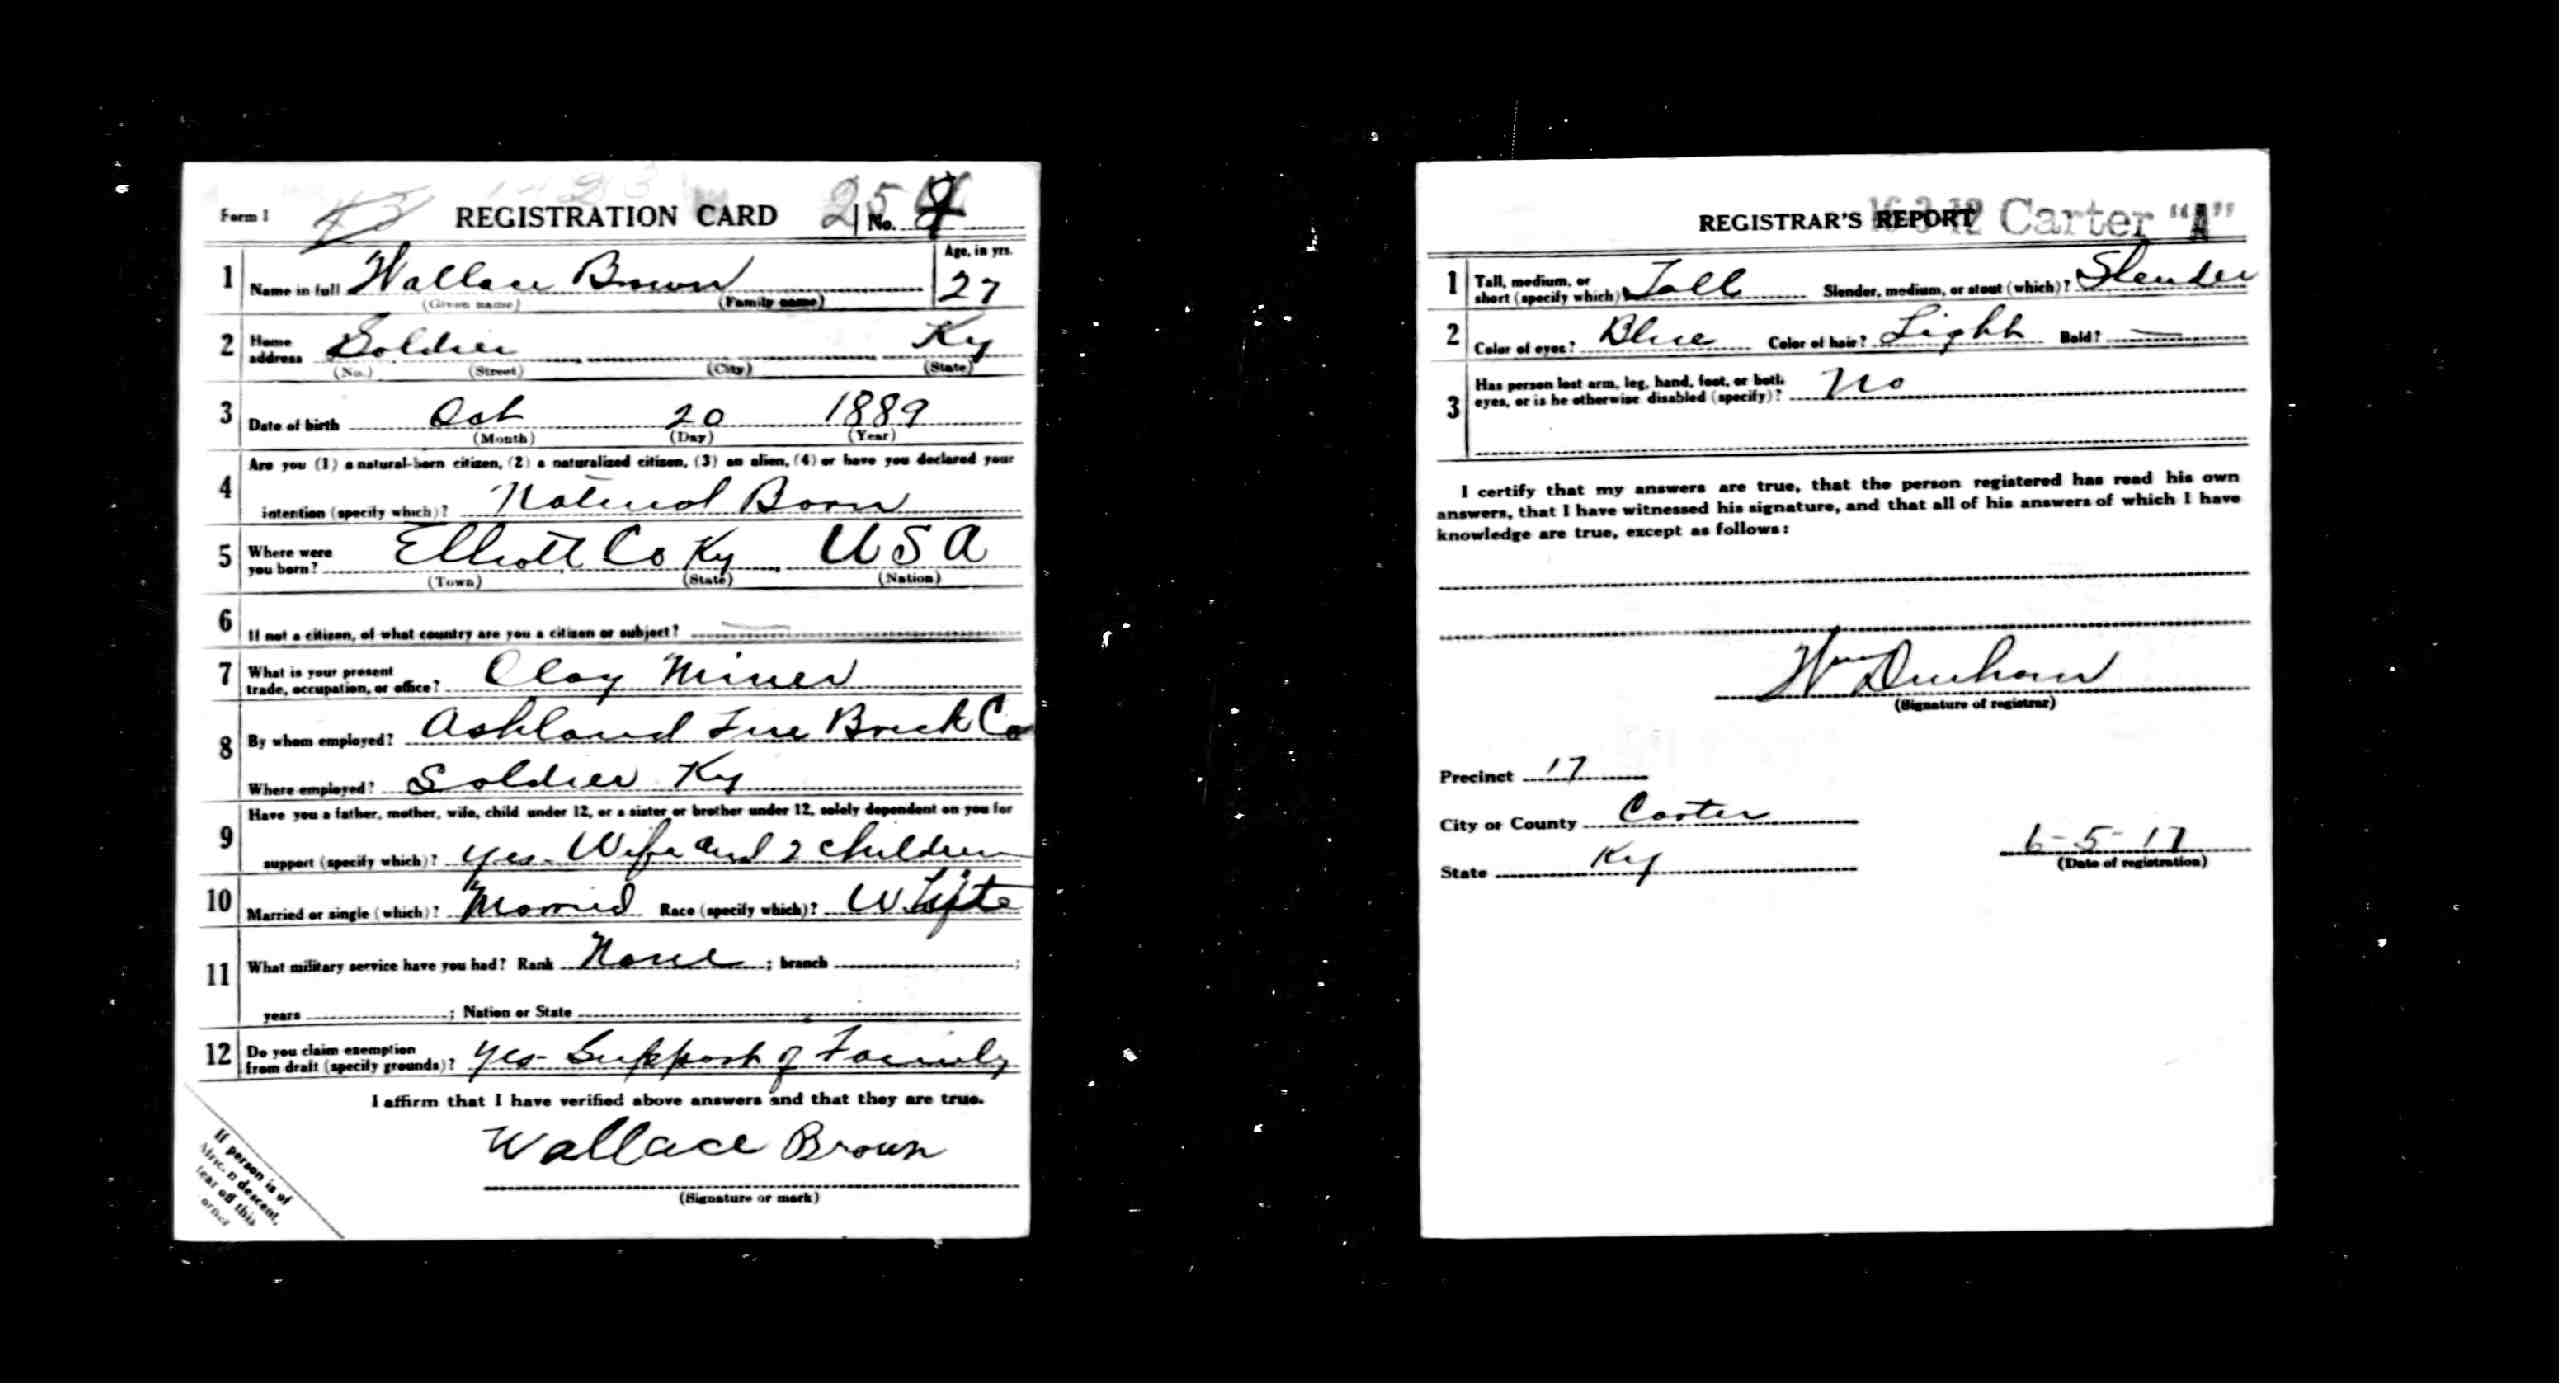 Form 1 REGISTRATION CARD No. 9
1 Name in full Wallace Brown Age, in yrs. 27
(Given name) (Family name)
2 Home address Soldier Ky
(No.) (Street) (City) (State)
3 Date of birth Oct 20 1889
(Month) (Day) (Year)
4 Are you (1) a natural-born citizen, (2) a naturalized citizen, (3) an alien, (4) or have you declared your
intention (specify which)? Natural Born
5 Where were you born? Elliott Co Ky U S A
(Town) (State) (Nation)
6 If not a citizen, of what country are you a citizen or subject?
7 What is your present trade, occupation, or office? Clay Miner
8 By whom employed? Ashland Fire Brick Co
Where employed? Soldier Ky
9 Have you a father, mother, wife, child under 12, or a sister or brother under 12, solely dependent on you for
support (specify which)? Yes- Wife and 2 children
10 Married or single (which)? Married Race (specify which)? White
11 What military service have you had? Rank None ; branch ;
years ; Nation or State
12 Do you claim exemption from draft (specify grounds)? Yes- Support of Family
I affirm that I have verified above answers and that they are true.
Wallace Brown
(Signature or mark)
If person is of
African descent,
tear off this
corner
REGISTRAR'S REPORT Carter "A"
1 Tall, medium, or short (specify which)? Tall Slender, medium, or stout (which)? Slender
2 Color of eyes? Blue Color of hair? Light Bald?
3 Has person lost arm, leg, hand, foot, or both
eyes, or is he otherwise disabled (specify)? No
I certify that my answers are true, that the person registered has read his own
answers, that I have witnessed his signature, and that all of his answers of which I have
knowledge are true, except as follows:
Wm Dunham
(Signature of registrar)
Precinct 17
City or County Carter
State Ky
6-5-17
(Date of registration)